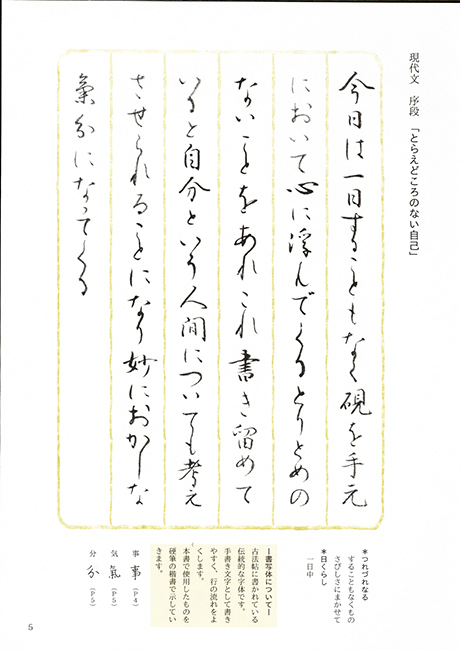 現代文 序段 「とらえどころのない自己」
今日は一日することもなく硯を手元
において心に浮んでくるとりとめの
ないことをあれこれ書き留めて
いると自分という人間についても考え
させられることになり妙におかしな
氣分になってくる
*つれづれなる
することもなくもの
さびしさにまかせて
*日くらし
一日中
ー書写体についてー
古法帖に書かれている
伝統的な字体です。
手書き文字として書き
やすく、行の流れをよ
くします。
本書で使用したものを
硬筆の楷書で示してい
きます。
事 事 (P4)
気 氣 (P5)
分 分 (P5)
5